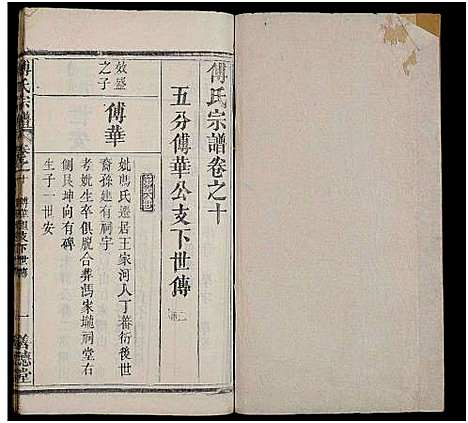 傅氏宗譜卷之十
五分傅華公支下世傳
效盛
之子
傅華
妣馮氏遷居王家河人丁蕃衍後世
裔孫建有祠宇
考妣生卒俱脫合葬馮家壠祠堂右
側艮坤向有碑
生子一世安
傅氏宗譜
卷之十
一
善德堂